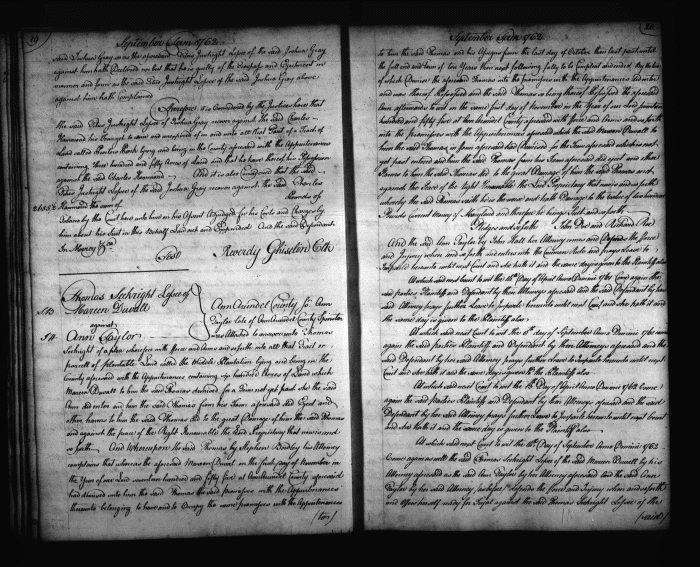 19
September Term 1762
said Joshua Gray
against him hath Declared in but that he is guilty of the Trespass and Ejectment in
manner and form as the said Peter Seekright Lessee of the said Joshua Gray above
against him hath complained
Therefore it is Considered by the Justices here that
the said Peter Seekright Lessee of Joshua Gray recover against the said Charles
Hammond his Term yet to come and unexpired of in and unto all that Part of a Tract of
Land called lying and being in the County aforesaid with the Appurtenances
containing three hundred and fifty Acres of Land and that he have thereof his Possession
against the said Charles Hammond And it is also Considered that the said
Peter Seekright Lessee of the said Joshua Gray recover against the said Charles
Hammond the sum of Pounds of
Tobacco by the Court here unto him on his Assent Adjudged for his Costs and Charges by
him about his Suit in this Behalf Laid out and Expended And the said Defendant
In Mercy &c
Test Reverdy Ghiselin Clk
Thomas Seekright Lessee of
Mareen Duvall
against
Ann Taylor
Ann Arundel County Sc. Ann
Taylor late of Ann Arundel County Spinster
was Attached to answer unto Thomas
Seekright of a plea wherefore with force and Arms and so forth into all that Tract or
parcell of Land called the Middle Plantation lying and being in the
County aforesaid with the Appurtenances containing hundred Acres of Land which
Mareen Duvall to him the said Thomas demised for a Term not yet past she the said
Ann did enter and him the said Thomas from his Farm aforesaid did Eject and
other harms to him the said Thomas did to the great Damage of him the said Thomas
and against the peace of the Right Honourable the Lord Proprietary that now is and
so forth And Whereupon the said Thomas by Stephen Bordley his Attorney
complains that whereas the aforesaid Mareen Duvall on the first Day of November in
the Year of our Lord seventeen hundred and fifty five at Ann Arundel County aforesaid
had demised unto him the said Thomas the said premisses with the Appurtenances
thereunto belonging to have and to Occupy the same premisses with the Appurtenances
(to)
20
September Term 1762
to him the said Thomas and his Assigns from the last day of October then last past untill
the full end and term of Ten Years then next following fully to be Compleat and ended By Virtue
of which Demise the aforesaid Thomas into the premisses with the Appurtenances did enter
and was thereof Possessed and the said Thomas so being thereof Possessed the aforesaid
Ann afterwards to wit on the same first day of November in the Year of our Lord seventeen
hundred and fifty five at Ann Arundel County aforesaid with force and Arms and so forth
into the premisses with the Appurtenances aforesaid which the said Mareen Duvall to
him the said Thomas in form aforesaid had Demised for the Term aforesaid which is not
yet past entered and him the said Thomas from his Farm aforesaid did eject and other
Harms to him the said Thomas did to the great Damage of him the said Thomas and
against the Peace of the Right Honourable the Lord Proprietary that now is and so forth
whereby the said Thomas saith he is the worse and hath Damage to the Value of two hundred
Pounds Current Money of Maryland and therefore he brings Suit and so forth
Pledges and so forth John Doe and Richard Roe
And the said Ann Taylor by John Hall her Attorney comes and Defends the force
and Injury when and so forth and enters into the Common Rule and prays Leave to
Imparle hereunto untill next Court and she hath it and the same day is given to the Plaintiff also
At which said next Court to wit the Day of April Anno Domini 1761 Come again the
said parties Plaintiff and Defendant by their Attorneys aforesaid and the said Defendant by her
said Attorney prays further Leave to Imparle hereunto untill next Court and she hath it and
the same day is given to the Plaintiff also
At which said next Court to wit the 8th day of September Anno Domini 1761 come
again the said parties Plaintiff and Defendant by their Attorneys aforesaid and the
said Defendant by her said Attorney prays further leave to Imparle hereunto untill next
Court and she hath it and the same day is given to the Plaintiff also
At which said next Court to wit the Day of April Anno Domini 1762 come
again the said parties Plaintiff and Defendant by their Attorneys aforesaid and the said
Defendant by her said Attorney prays further Leave to Imparle hereunto untill next Court
and she hath it and the same day is given to the Plaintiff also
At which said next Court to wit the Day of September Anno Domini 1762
Comes again as well the said Thomas Seekright Lessee of the said Mareen Duvall by his
Attorney aforesaid as the said Ann Taylor by her Attorney aforesaid And the said Ann
Taylor by her said Attorney Defends the force and Injury when and so forth
and the said Thomas Seekright Lessee of the
(said)